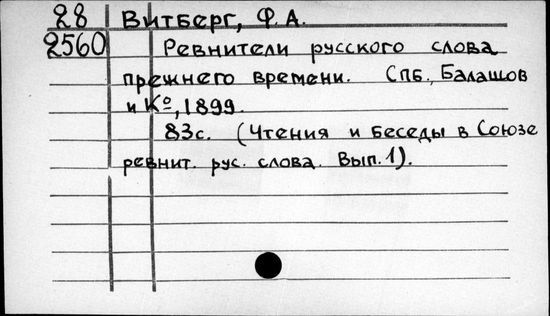 28 Витберг, Ф.А.
2560 Ревнители русского слова
прежнего времени. Спб., Балашов
и К⁰, 1899.
83с. (Чтения и беседы в Союзе
ревнит. рус. слова. Вып.1).